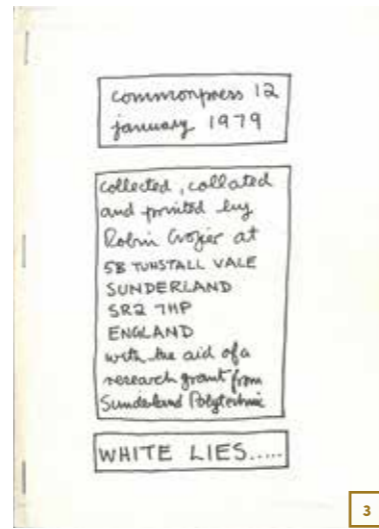 commonpress 12
january 1979
collected, collated
and printed by
Robin Crozier at
5B TUNSTALL VALE
SUNDERLAND
SR2 7HP
ENGLAND
with the aid of a
research grant from
Sunderland Polytechnic
WHITE LIES.....
3